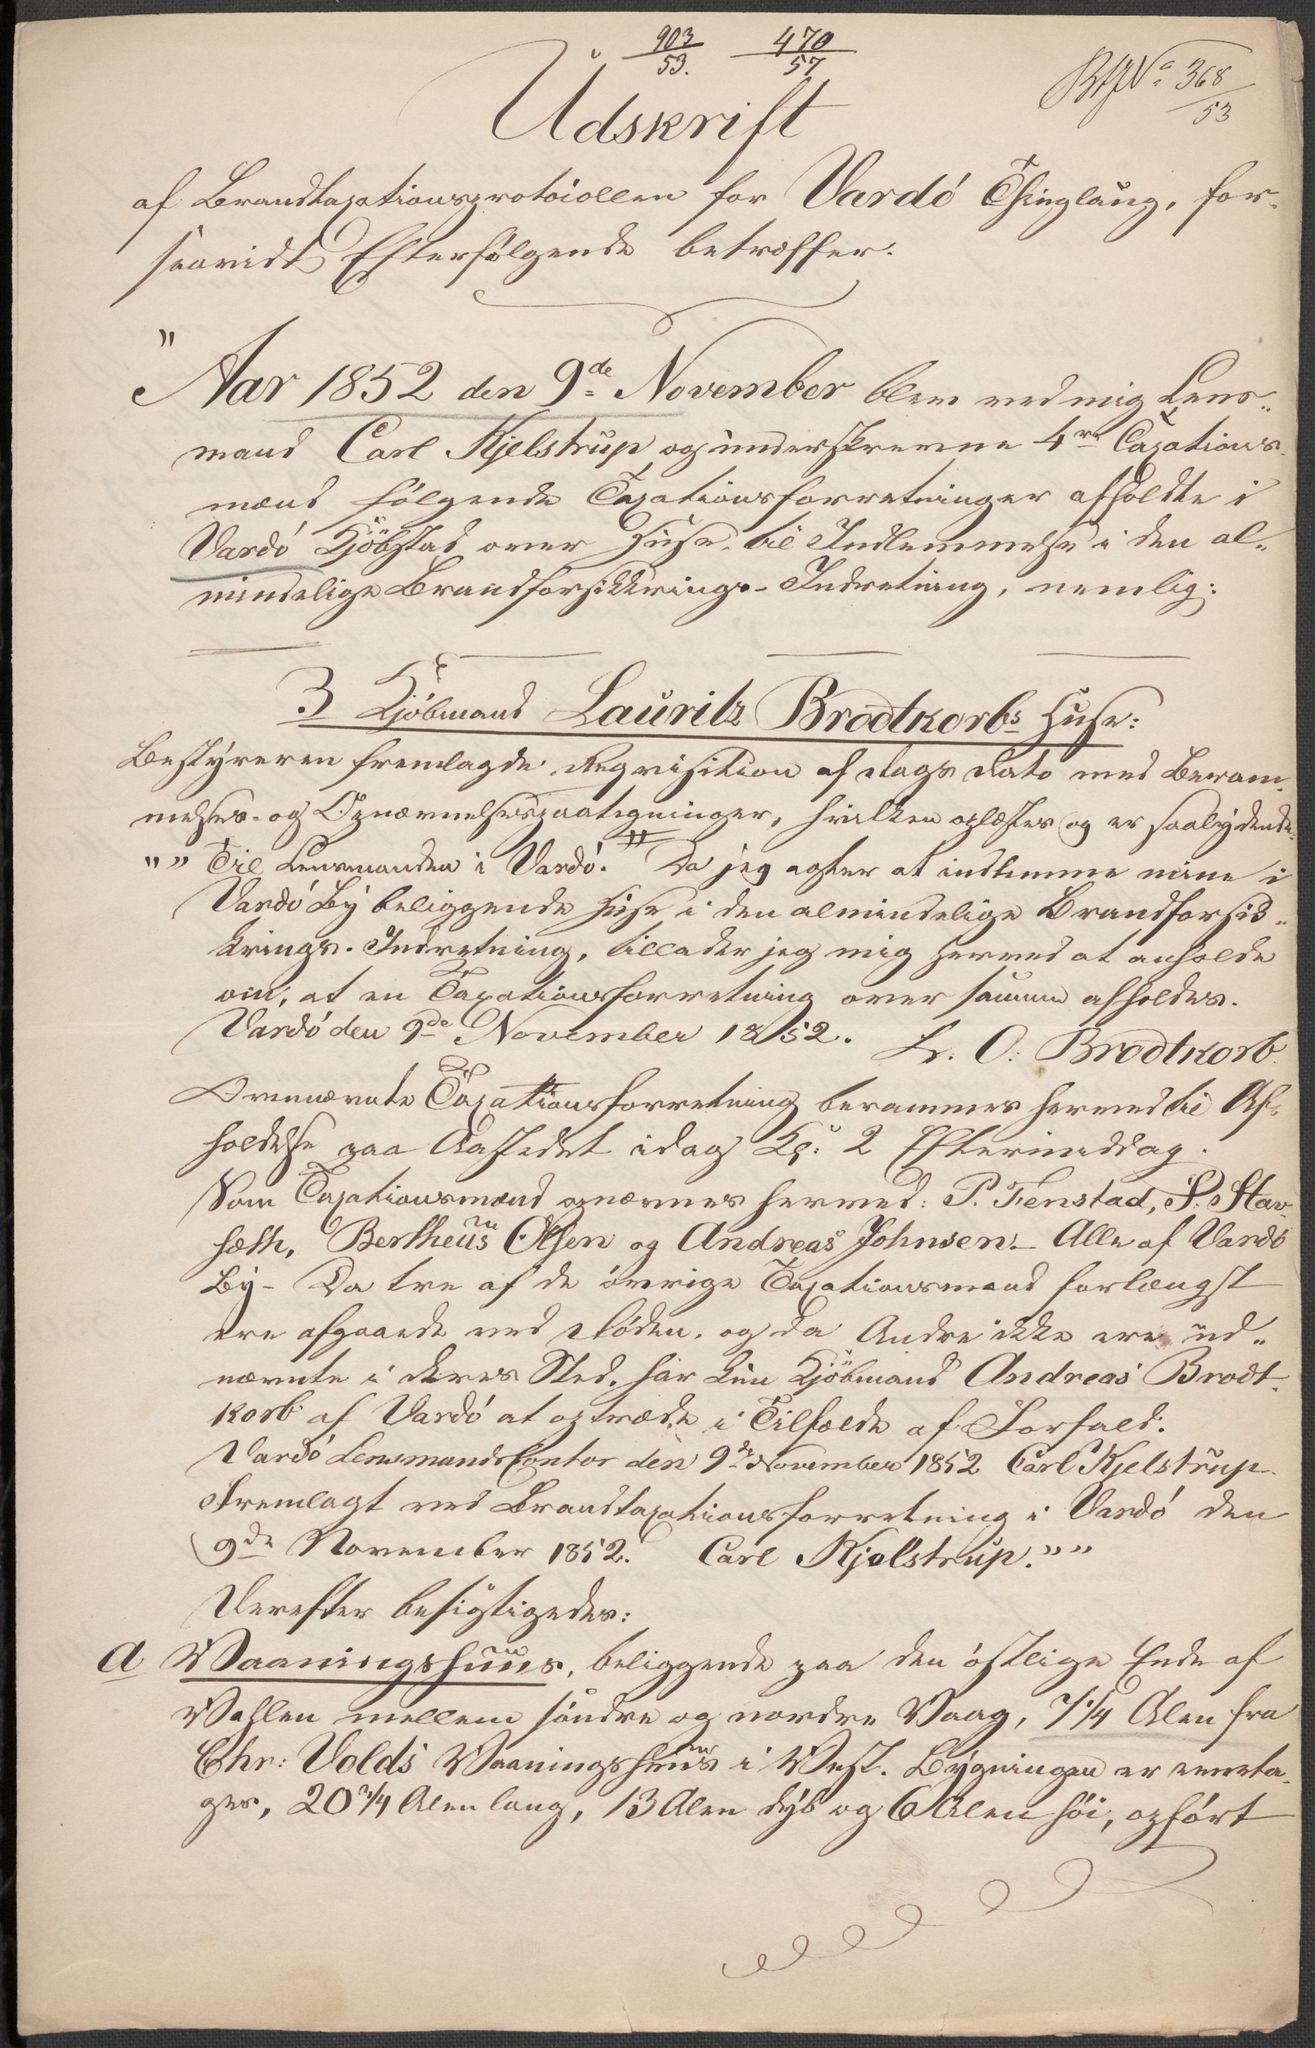 903/53. 470/57
No 368/53
Udskrift
af Brandtaxationsprotocollen for Vardö Thinglaug, for-
saavidt Efterfølgende betræffer.
" Aar 1852 den 9de November blev ved mig Lens-
mand Carl Kjelstrup og underskrevne 4re Taxations-
mænd følgende Taxationsforretninger afholdte i
Vardö Kjöbstad over Huse til Indlemmelse i den al-
mindelige Brandforsikkrings-Indretning, nemlig:
3 Kjöbmand Lauritz Brodtkorbs Huse:
Bestyreren fremlagde Reqvisition af Dags Dato med Beram-
melses- og Opnævnelsespaategninger, hvilken oplæstes og er saalydende
"" Til Lensmanden i Vardö. Da jeg agter at indlemme mine i
Vardö By beliggende Huse i den almindelige Brandforsik-
krings-Indretning, tillader jeg mig herved at anholde
om, at en Taxationsforretning over samme afholdes.
Vardö den 9de November 1852. L. O: Brodtkorb.
Ovennævnte Taxationsforretning berammes herved til Af-
holdelse paa Aastedet idag Kl: 2 Eftermiddag.
Som Taxationsmænd opnævnes herved: P. Fenstad, P. Stav-
sæth, Bertheus Olsen og Andreas Johnsen - Alle af Vardö
By - Da tre af de övrige Taxationsmænd forlængst
ere afgaaede ved Döden, og da Andre ikke ere ud-
nævnte i deres Sted, har kun Kjöbmand Andreas Brodt-
korb af Vardö at optræde i Tilfælde af Forfald.
Vardö Lensmandscontor den 9de November 1852 Carl Kjelstrup.
Fremlagt ved Brandtaxationsforretning i Vardö den
9de November 1852. Carl Kjelstrup.""
Derefter besigtigedes:
a Vaaningshuus, beliggende paa den östlige Ende af
Valen mellem söndre og nordre Vaag, 7 1/4 Alen fra
Chr: Volds Vaaningshuus i Vest. Bygningen er eneta-
ges, 20 3/4 Alen lang, 13 Alen dyb og 6 Alen höi, opfört